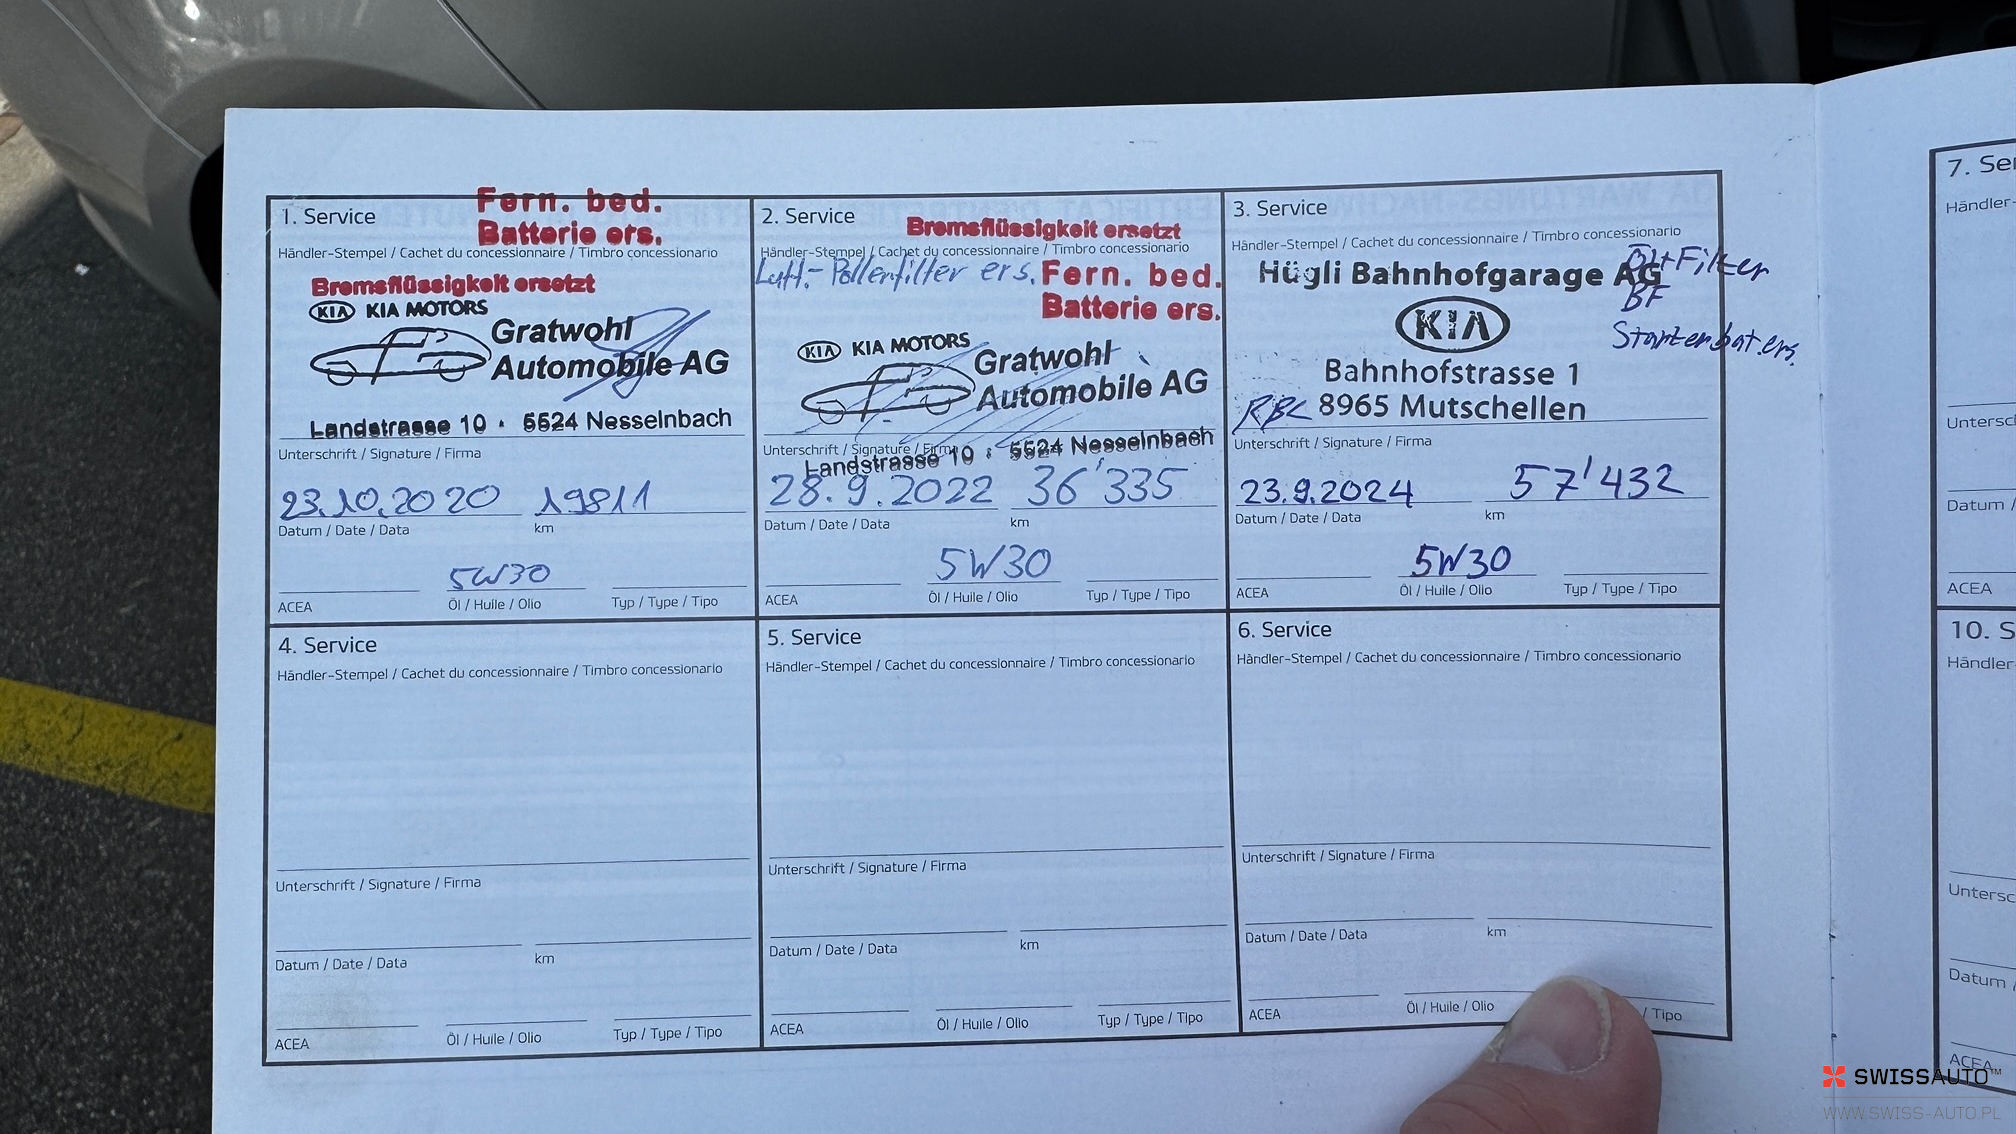 1. Service
Fern. bed.
Batterie ers.
Händler-Stempel / Cachet du concessionnaire / Timbro concessionario
Bremsflüssigkeit ersetzt
KIA KIA MOTORS
Gratwohl
Automobile AG
Landstrasse 10 · 5524 Nesselnbach
Unterschrift / Signature / Firma
23.10.2020 19811
Datum / Date / Data km
5W30
ACEA Öl / Huile / Olio Typ / Type / Tipo
2. Service
Bremsflüssigkeit ersetzt
Händler-Stempel / Cachet du concessionnaire / Timbro concessionario
Luft.- Pollenfilter ers.
Fern. bed.
Batterie ers.
KIA KIA MOTORS
Gratwohl
Automobile AG
Landstrasse 10 · 5524 Nesselnbach
Unterschrift / Signature / Firma
28.9.2022 36'335
Datum / Date / Data km
5W30
ACEA Öl / Huile / Olio Typ / Type / Tipo
3. Service
Händler-Stempel / Cachet du concessionnaire / Timbro concessionario
Hügli Bahnhofgarage AG
Öl+Filter
BF
KIA
Starterbat.ers.
Bahnhofstrasse 1
8965 Mutschellen
Unterschrift / Signature / Firma
23.9.2024 57'432
Datum / Date / Data km
5W30
ACEA Öl / Huile / Olio Typ / Type / Tipo
4. Service
Händler-Stempel / Cachet du concessionnaire / Timbro concessionario
Unterschrift / Signature / Firma
Datum / Date / Data km
ACEA Öl / Huile / Olio Typ / Type / Tipo
5. Service
Händler-Stempel / Cachet du concessionnaire / Timbro concessionario
Unterschrift / Signature / Firma
Datum / Date / Data km
ACEA Öl / Huile / Olio Typ / Type / Tipo
6. Service
Händler-Stempel / Cachet du concessionnaire / Timbro concessionario
Unterschrift / Signature / Firma
Datum / Date / Data km
ACEA Öl / Huile / Olio / Tipo
7. Se
Händler-
Untersc
Datum /
ACEA
10. S
Händler
Untersc
Datum /
ACEA
SWISSAUTO™
WWW.SWISS-AUTO.PL